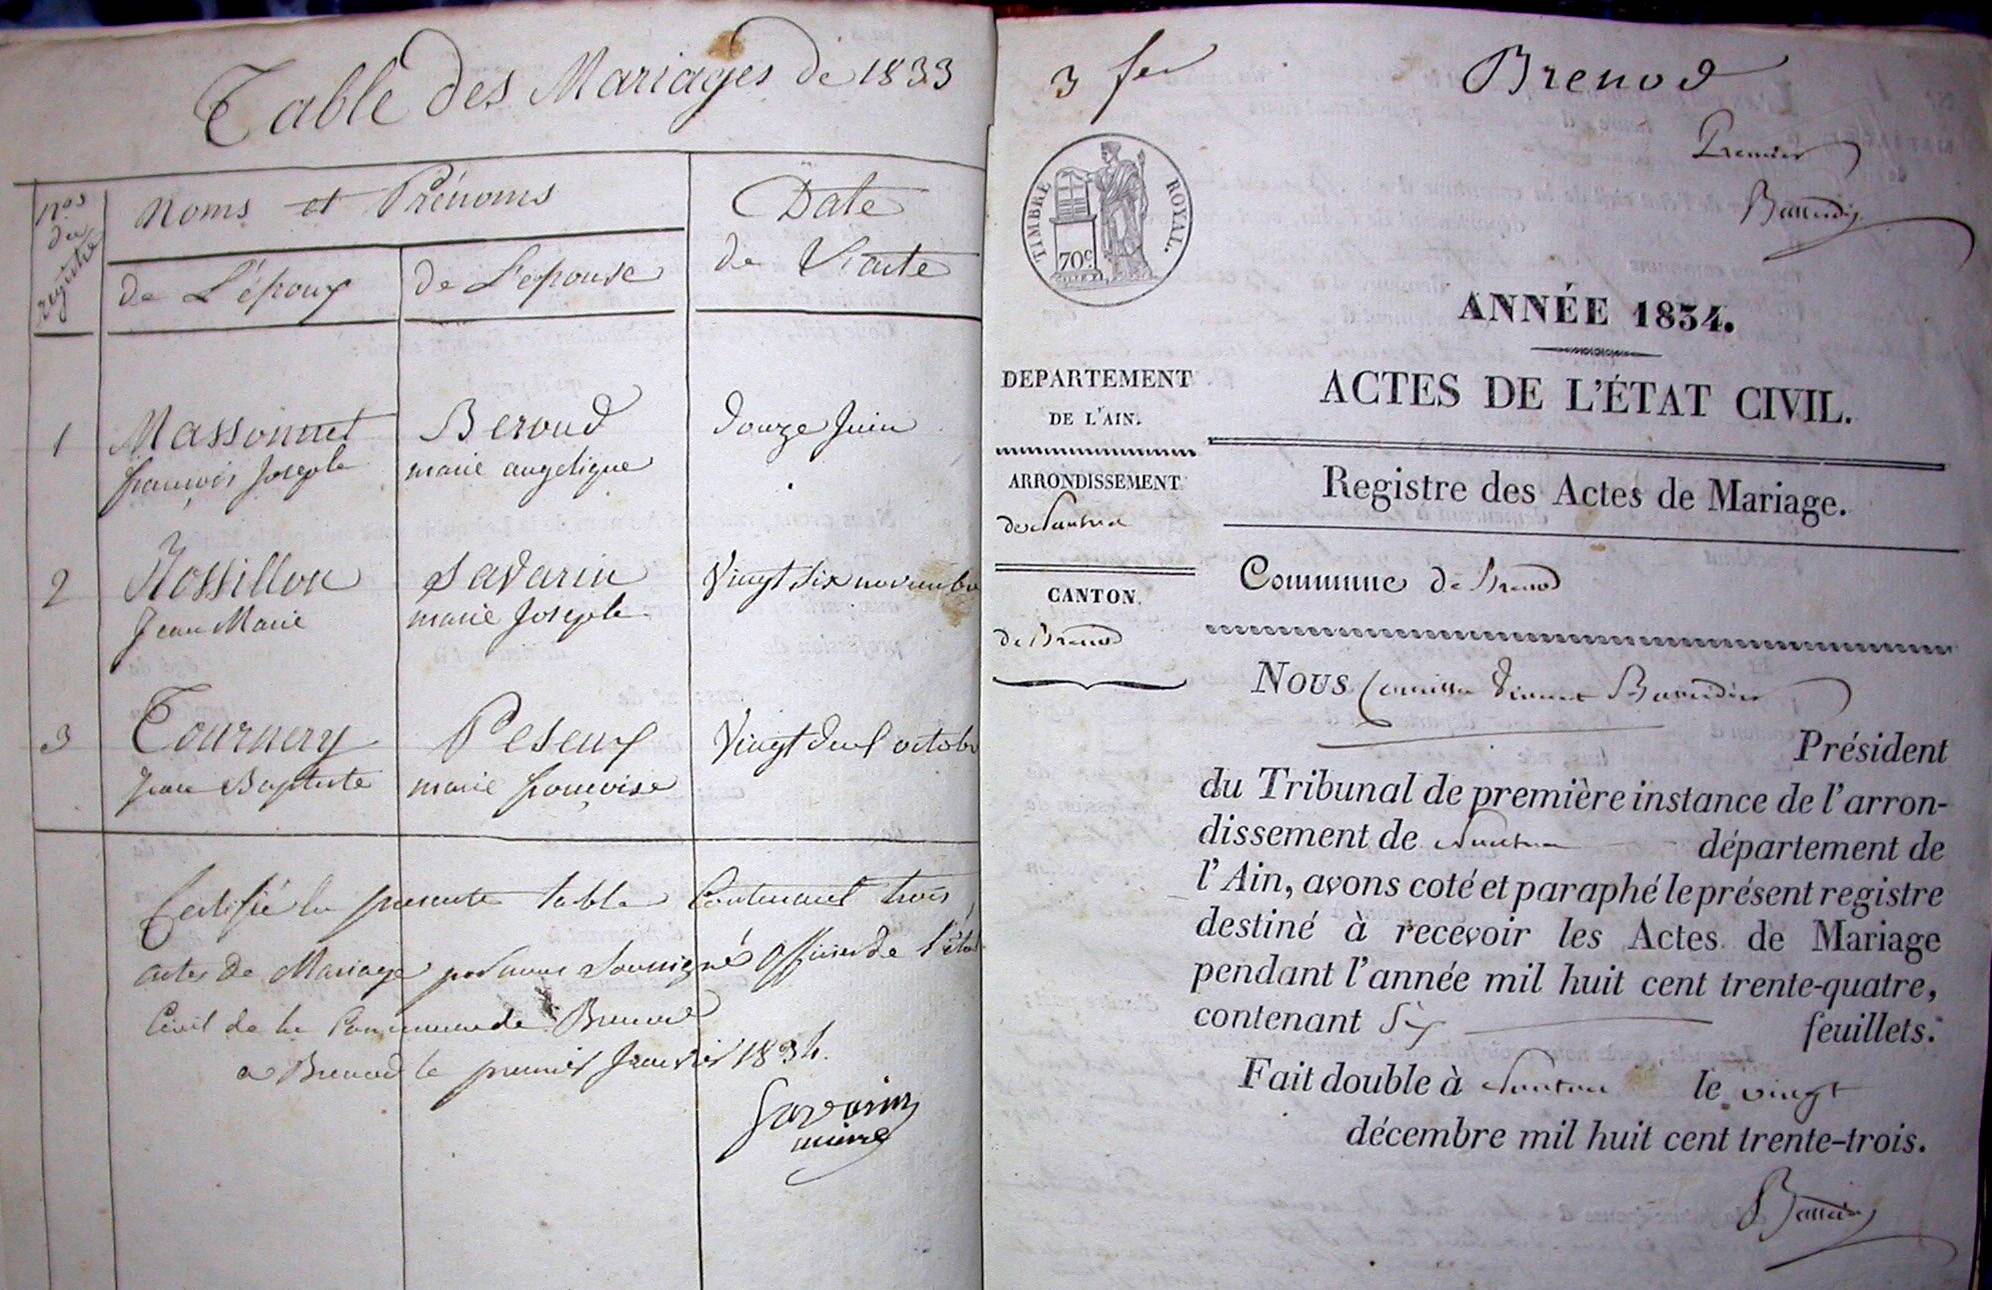 Table des Mariages de 1833
nos du registre
Noms et Prénoms
de L'époux
de L'épouse
Date
de L'acte
1
Massonnet
françois Joseph
Beroud
marie angelique
douze Juin
2
Rossillon
Jean Marie
Savarin
marie Joseph
Vingt six novembre
3
Tournery
Jean Baptiste
Peseux
marie françoise
Vingt deux octobre
Certifié la presente table Contenant trois
actes de Mariage par nous Soussigné Officier de l'état
Civil de la Commune de Brenod
a Brenod le premier Janvier 1834.
Savarin
maire
3 fer
Brenod
Premier
TIMBRE ROYAL.
70c
ANNÉE 1834.
ACTES DE L'ÉTAT CIVIL.
DEPARTEMENT
DE L'AIN.
ARRONDISSEMENT
de Nantua
CANTON
de Brenod
Registre des Actes de Mariage.
Commune de Brenod
Nous
Président
du Tribunal de première instance de l'arron-
dissement de Nantua département de
l'Ain, avons coté et paraphé le présent registre
destiné à recevoir les Actes de Mariage
pendant l'année mil huit cent trente-quatre,
contenant Six feuillets.
Fait double à Nantua le vingt
décembre mil huit cent trente-trois.